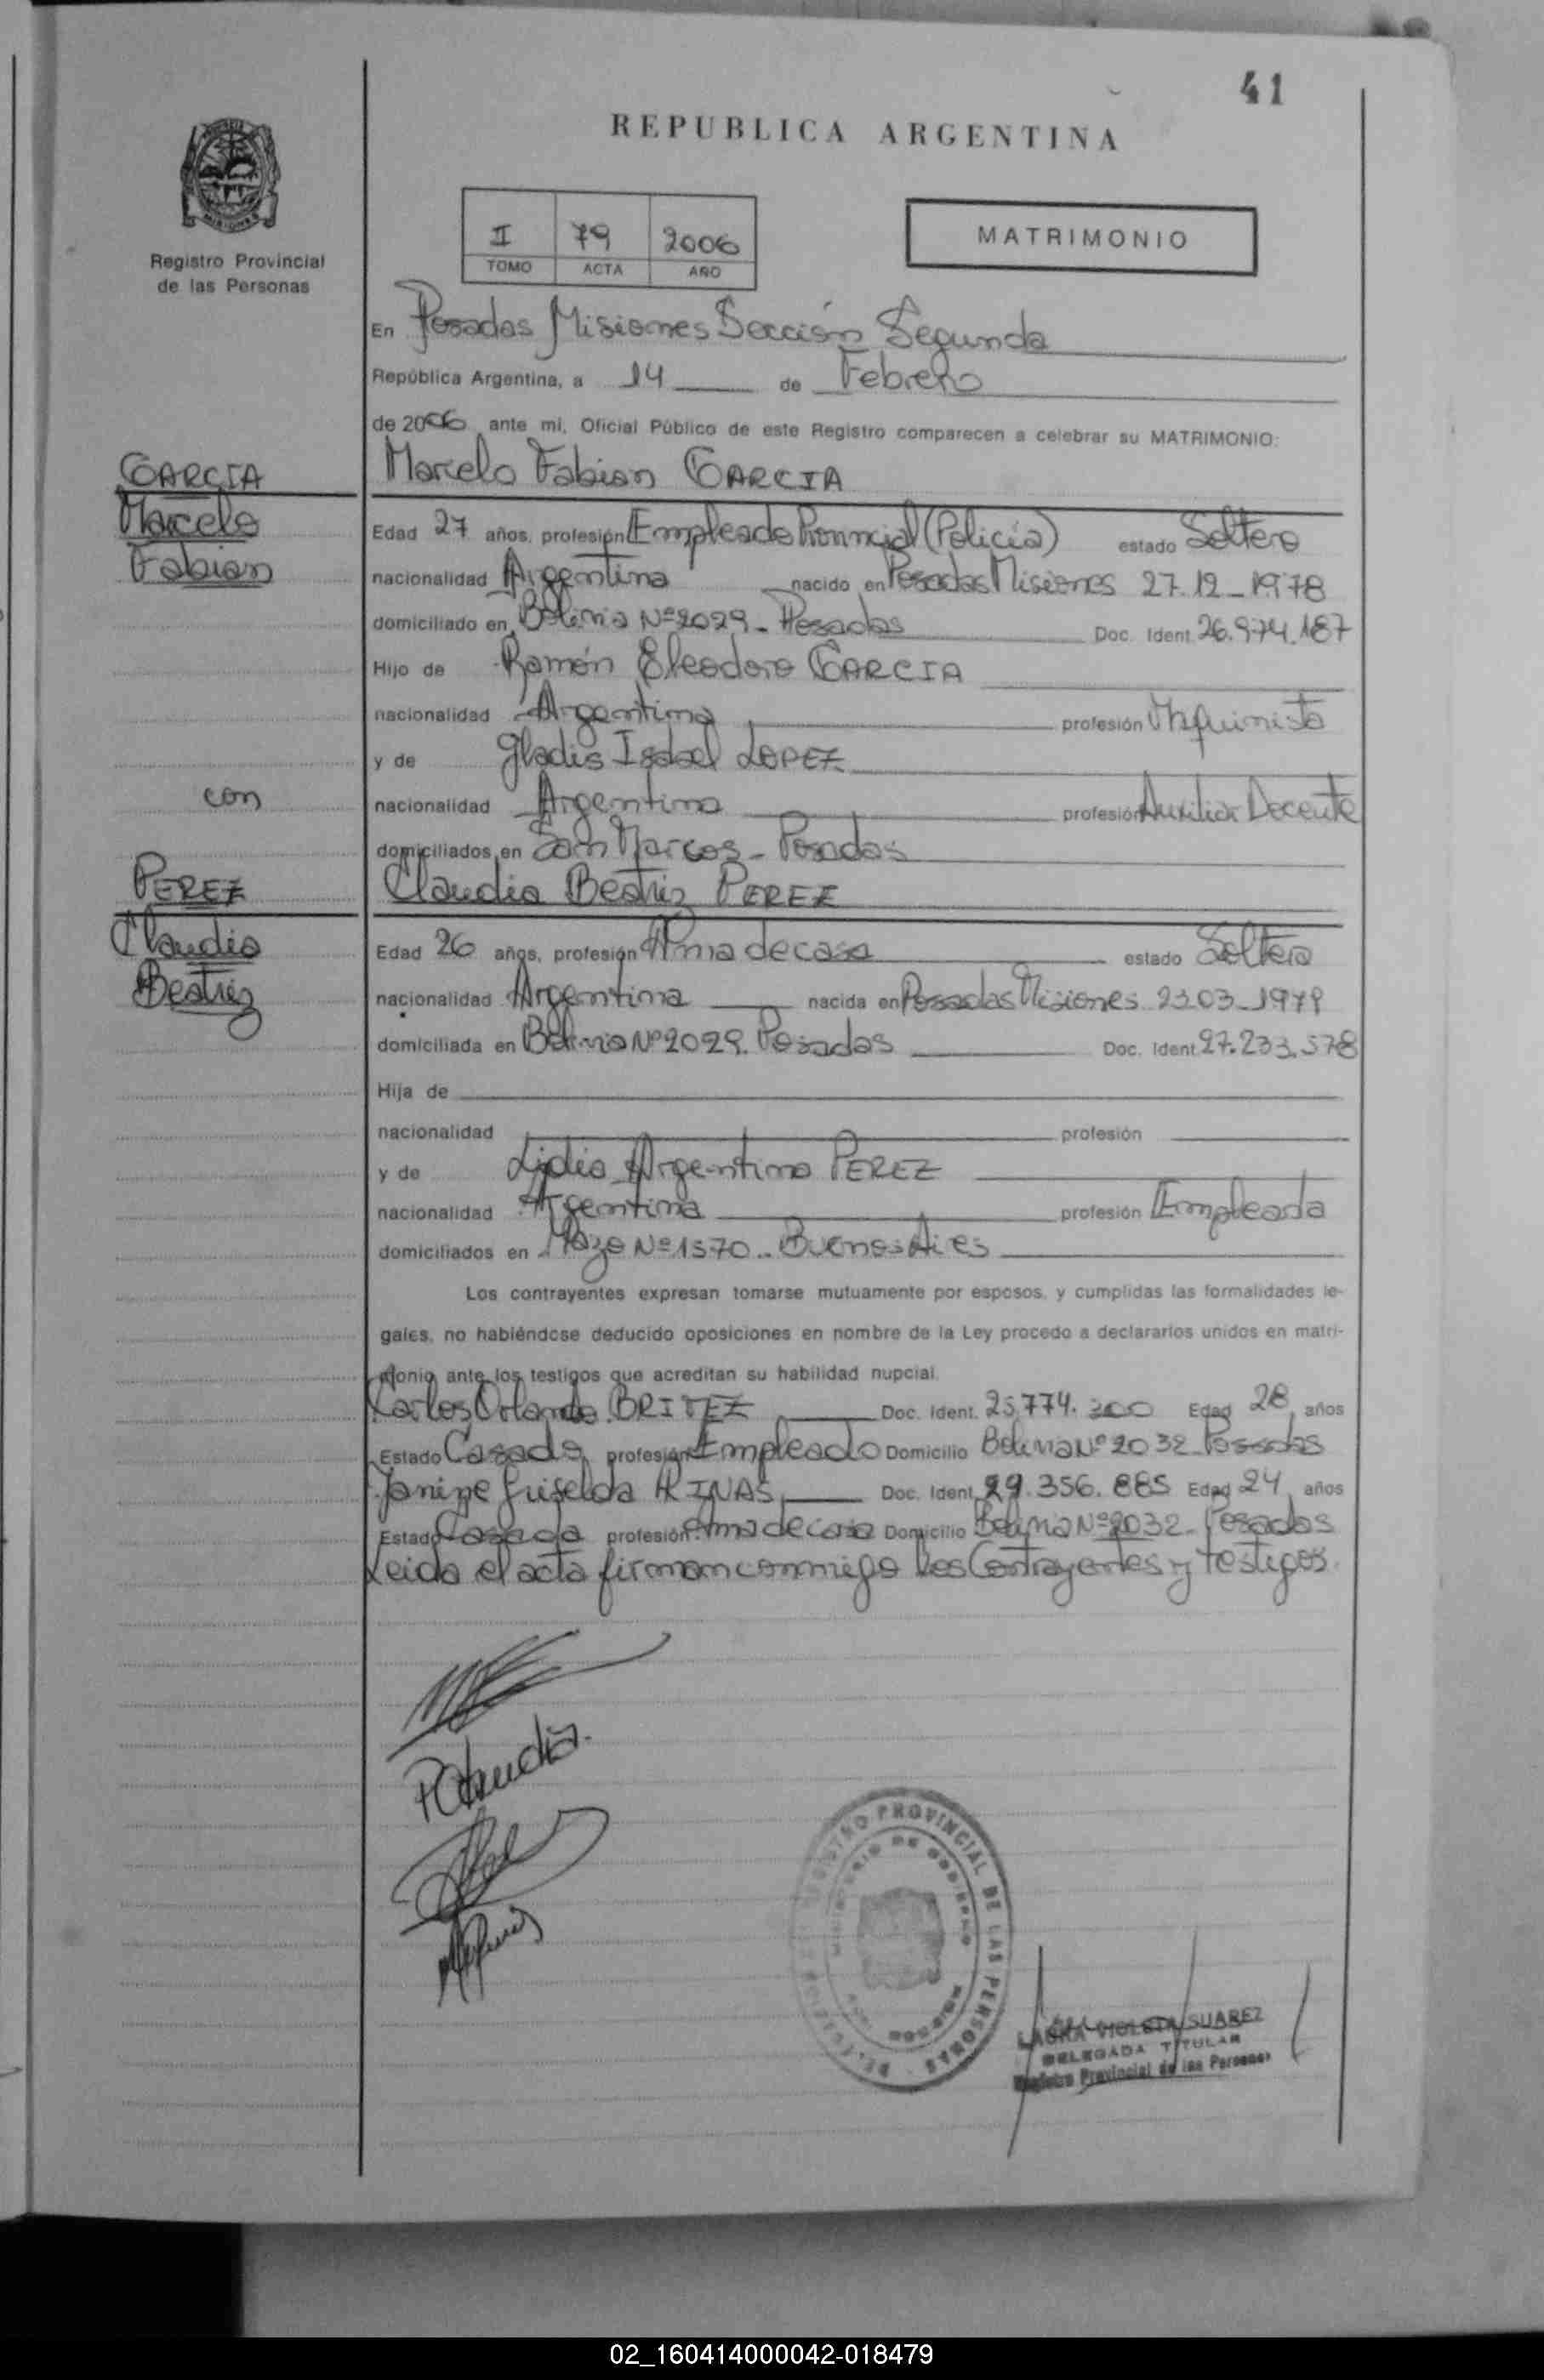 41
REPUBLICA ARGENTINA
Registro Provincial
de las Personas
I 79 2006
TOMO ACTA AÑO
MATRIMONIO
En Posadas Misiones Sección Segunda
República Argentina, a 14 de Febrero
de 2006 ante mi, Oficial Público de este Registro comparecen a celebrar su MATRIMONIO:
GARCIA
Marcelo
Fabian
con
PEREZ
Claudia
Beatriz
Marcelo Fabian GARCIA
Edad 27 años, profesión Empleado Provincial (Policía) estado Soltero
nacionalidad Argentina nacido en Posadas Misiones 27.12_1978
domiciliado en Bolivia Nº 2029_ Posadas Doc. Ident. 26.974.187
Hijo de Ramón Eleodoro GARCIA
nacionalidad Argentina profesión Maquinista
y de Gladis Isabel LOPEZ
nacionalidad Argentina profesión Auxiliar Docente
domiciliados en San Marcos_ Posadas
Claudia Beatriz PEREZ
Edad 26 años, profesión Ama de casa estado Soltera
nacionalidad Argentina nacida en Posadas Misiones 23.03_1979
domiciliada en Bolivia Nº 2029. Posadas Doc. Ident. 27.233.578
Hija de
nacionalidad profesión
y de Lidia Argentina PEREZ
nacionalidad Argentina profesión Empleada
domiciliados en Nº 1570_ Buenos Aires
Los contrayentes expresan tomarse mutuamente por esposos, y cumplidas las formalidades le-
gales, no habiéndose deducido oposiciones en nombre de la Ley procedo a declararlos unidos en matri-
monio ante los testigos que acreditan su habilidad nupcial.
Carlos Orlando BRITEZ Doc. Ident. 25.774.300 Edad 28 años
Estado Casado profesión Empleado Domicilio Bolivia Nº 2032_ Posadas
Janine Griselda Doc. Ident. 29.356.885 Edad 24 años
Estado Casada profesión Ama de casa Domicilio Bolivia Nº 2032_ Posadas
Leida el acta firman conmigo los Contrayentes y testigos.
P Claudia.
REGISTRO PROVINCIAL DE LAS PERSONAS
LAURA VIOLETA SUAREZ
DELEGADA TITULAR
Registro Provincial de las Personas
02_160414000042-018479